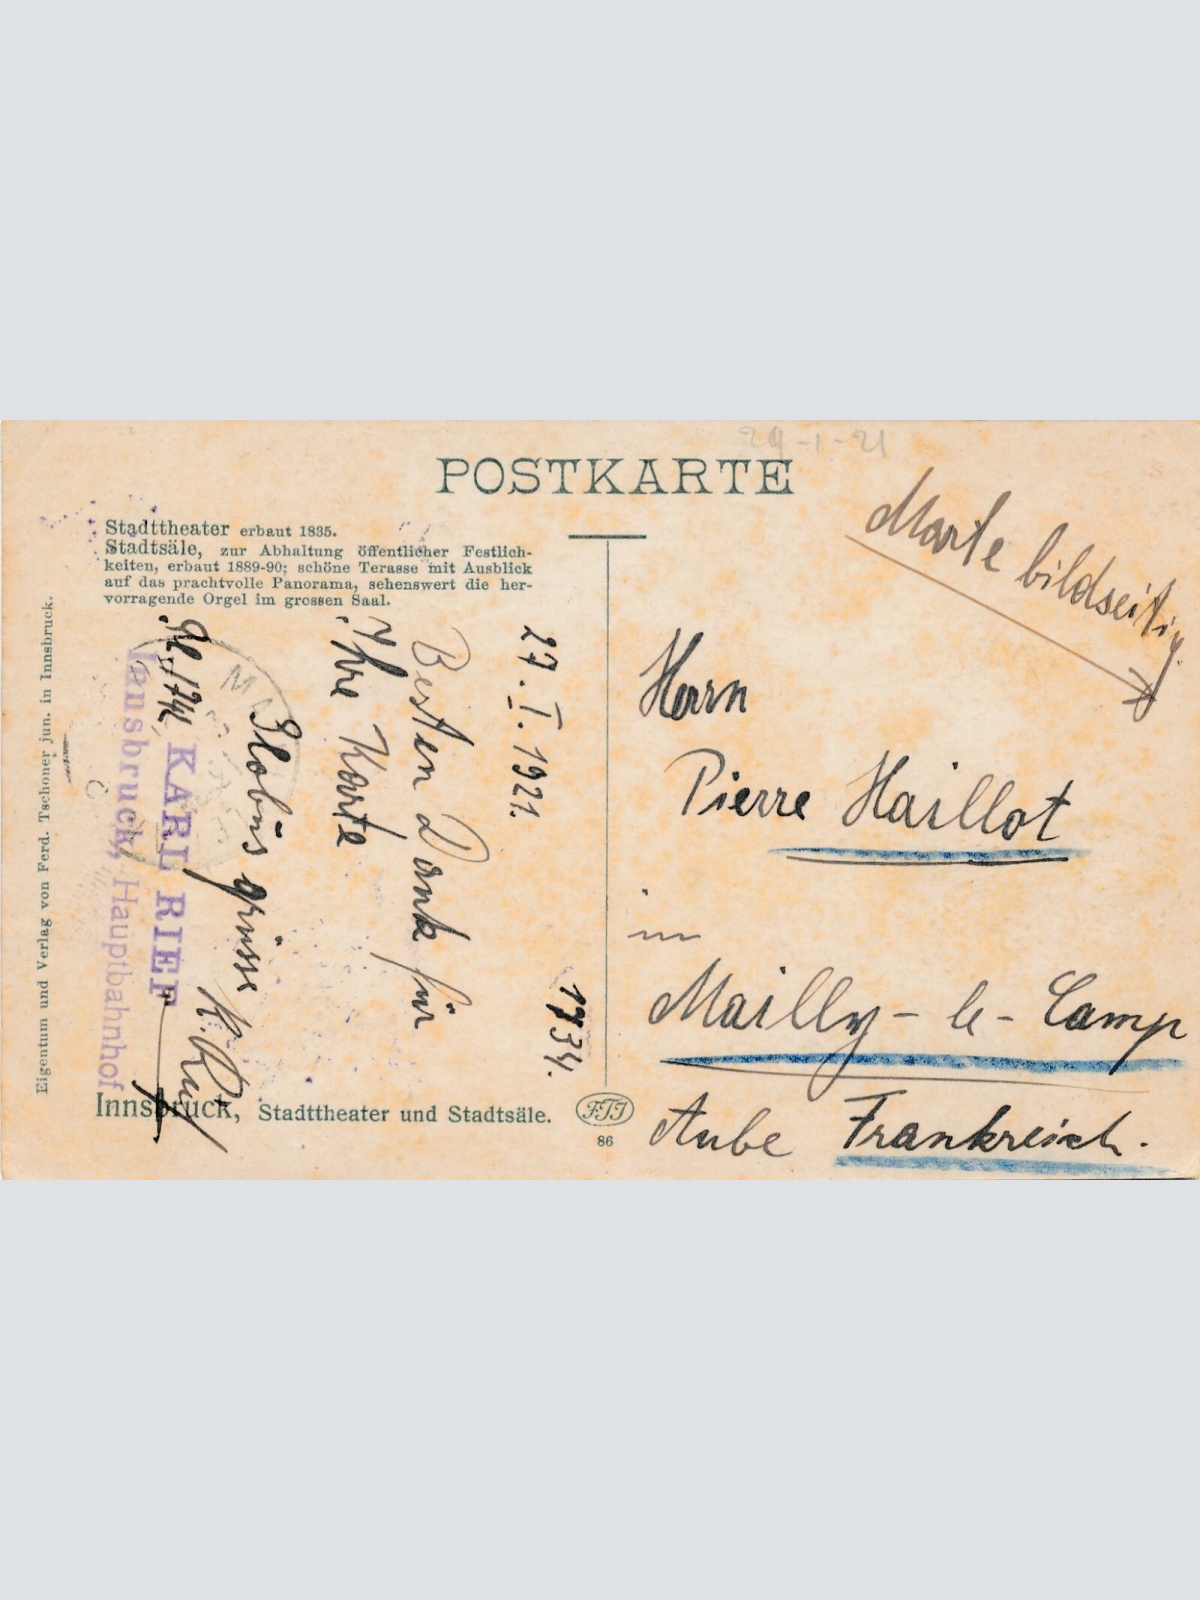 29-1-21
POSTKARTE
Marke bildseitig.
Stadttheater erbaut 1835.
Stadtsäle, zur Abhaltung öffentlicher Festlich-
keiten, erbaut 1889-90; schöne Terasse mit Ausblick
auf das prachtvolle Panorama, sehenswert die her-
vorragende Orgel im grossen Saal.
27. I. 1921.
1734.
Besten Dank für
Ihre Karte
Globusgrüsse
K. Rief
KARL RIEF
Innsbruck, Hauptbahnhof
Eigentum und Verlag von Ferd. Tschoner jun. in Innsbruck.
Innsbruck, Stadttheater und Stadtsäle.
FTI
86
Herrn
Pierre Haillot
in
Mailly-le-Camp
Aube Frankreich.